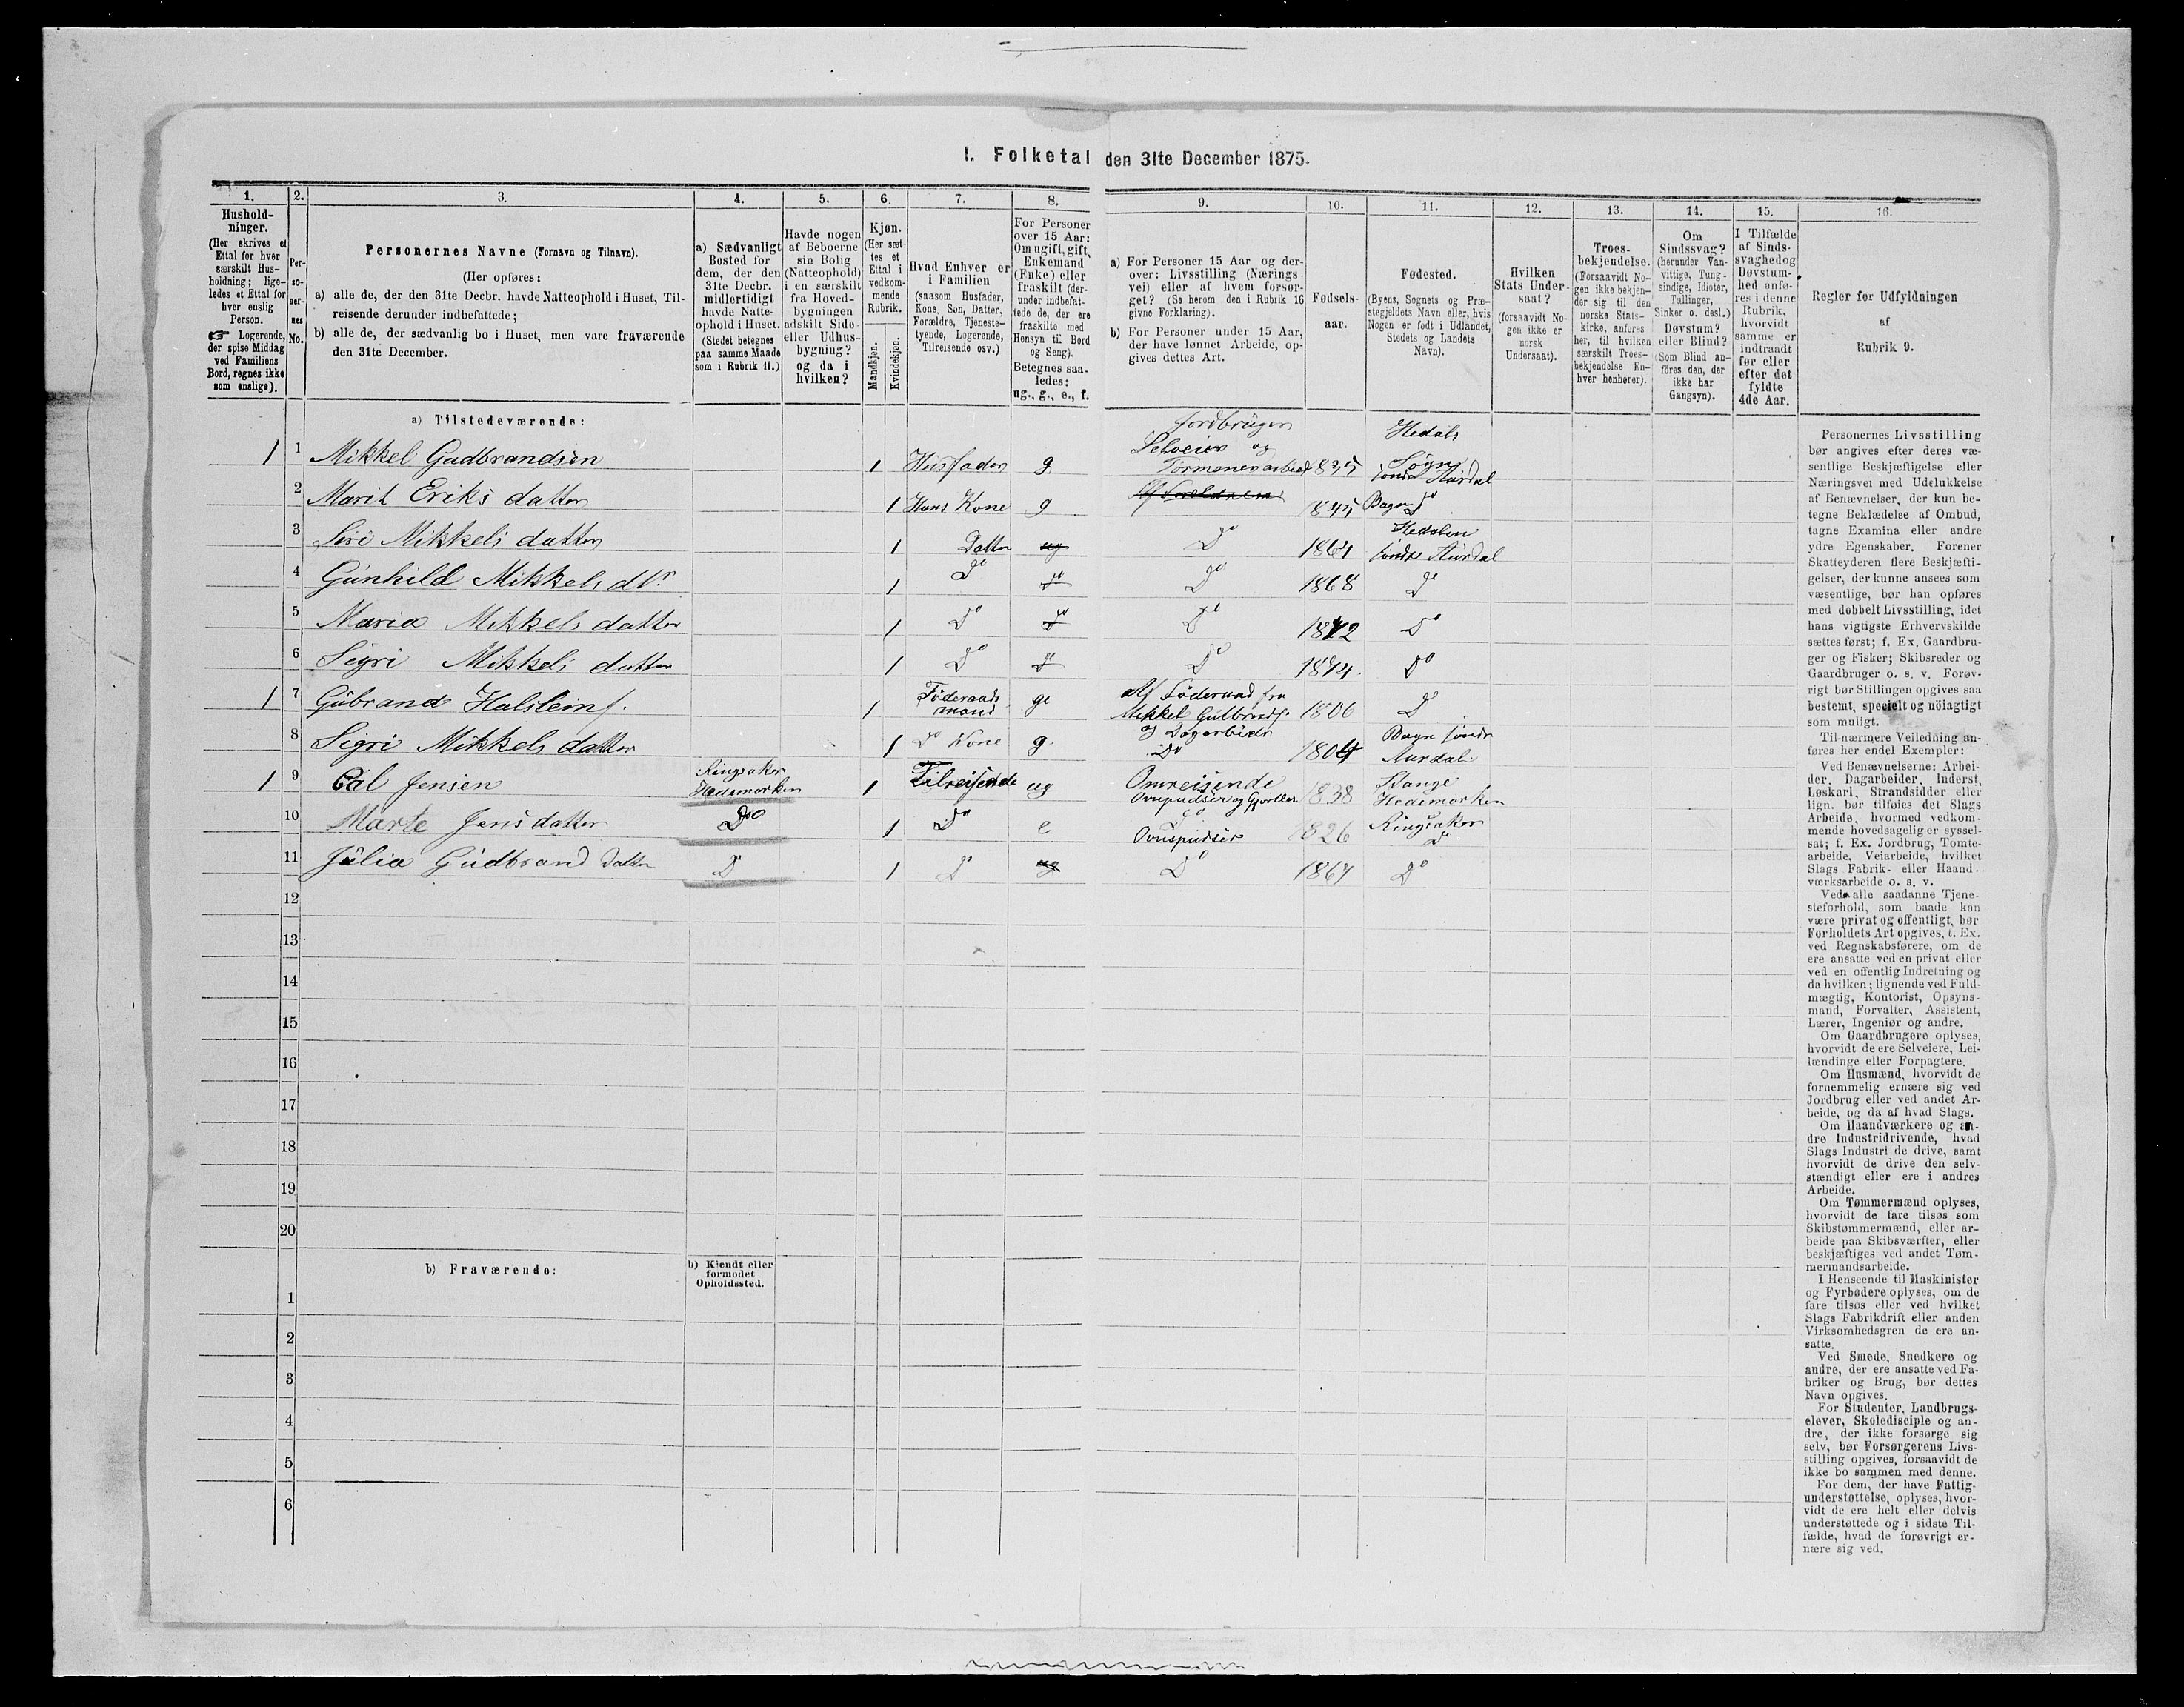 I. Folketal den 31te December 1875.
1. 2. 3. 4. 5. 6. 7. 8. 9. 10. 11. 12. 13. 14. 15. 16.
Hushold-
ninger.
(Her skrives et
Ettal for hver
særskilt Hus-
holdning; lige-
ledes et Ettal for
hver enslig
Person.
☞ Logerende,
der spise Middag
ved Familiens
Bord, regnes ikke
som enslige).
Per-
so-
ner-
nes
No.
Personernes Navne (Fornavn og Tilnavn).
(Her opføres:
a) alle de, der den 31te Decbr. havde Natteophold i Huset, Til-
reisende derunder indbefattede;
b) alle de, der sædvanlig bo i Huset, men vare fraværende
den 31te December.
a) Sædvanligt
Bosted for
dem, der den
31te Decbr.
midlertidigt
havde Natte-
ophold i Huset.
(Stedet betegnes
paa samme Maade
som i Rubrik 11.)
Havde nogen
af Beboerne
sin Bolig
(Natteophold)
i en særskilt
fra Hoved-
bygningen
adskilt Side-
eller Udhus-
bygning?
og da i
hvilken?
Kjøn.
(Her sæt-
tes et
Ettal i
vedkom-
mende
Rubrik.
Mandkjøn.
Kvindekjøn.
Hvad Enhver er
i Familien
(saasom Husfader,
Kone, Søn, Datter,
Forældre, Tjeneste-
tyende, Logerende,
Tilreisende osv.)
For Personer
over 15 Aar:
Om ugift, gift,
Enkemand
(Enke) eller
fraskilt (der-
under indbefat-
tede de, der ere
fraskilte med
Hensyn til Bord
og Seng).
Betegnes saa-
ledes:
ug., g., e., f.
a) For Personer 15 Aar og der-
over: Livsstilling (Nærings-
vei) eller af hvem forsør-
get? (Se herom den i Rubrik 16
givne Forklaring).
b) For Personer under 15 Aar,
der have lønnet Arbeide, op-
gives dettes Art.
Fødsels-
aar.
Fødested.
(Byens, Sognets og Præ-
stegjeldets Navn eller, hvis
Nogen er født i Udlandet,
Stedets og Landets
Navn).
Hvilken
Stats Under-
saat?
(forsaavidt No-
gen ikke er
norsk
Undersaat).
Troes-
bekjendelse.
(Forsaavidt No-
gen ikke bekjen-
der sig til den
norske Stats-
kirke, anføres
her, til hvilken
særskilt Troes-
bekjendelse En-
hver henhører).
Om
Sindssvag?
(herunder Van-
vittige, Tung-
sindige, Idioter,
Tullinger,
Sinker o. desl.)
Døvstum?
eller Blind?
(Som Blind an-
føres den, der
ikke har
Gangsyn).
I Tilfælde
af Sinds-
svaghed og
Døvstum-
hed anfø-
res i denne
Rubrik,
hvorvidt
samme er
indtraadt
før eller
efter det
fyldte
4de Aar.
Regler for Udfyldningen
af
Rubrik 9.
a) Tilstedeværende:
1 1 Mikkel Gudbrandsen 1 Husfader g Jordbruger Selveier og Tørmenerarbeid 1835 Hedals Sogn søndr Aurdal
2 Marit Eriks datter 1 Hans Kone g 1845 Bagn Do
3 Siri Mikkels datter 1 Datter ug Do 1864 Hedalen søndre Aurdal
4 Gunhild Mikkels dtr 1 Do Do Do 1868 Do
5 Maria Mikkels datter 1 Do Do Do 1872 Do
6 Sigri Mikkels datter 1 Do Do Do 1874. Do
1 7 Gubrand Halsteins. 1 Føderaads mand ge Af Føderaad fra Mikkel Gulbrands. 1806 Do
8 Sigri Mikkels datter 1 Do Kone g. og Dagarbeide Do 1804 Bagn søndr Aurdal
1 9 Jensen Ringsaker Hedemarken 1 Tilreisende ug Omreisende Ovnpudser og Gjørtler 1838 Stange Hedemarken
10 Marte Jensdatter Do 1 Do e Do Ovnspudser 1826 Ringsaker Do
11 Julia Gudbrand datter Do 1 Do ug Do 1867 Do
12
13
14
15
16
17
18
19
20
b) Fraværende:
b) Kjendt eller
formodet
Opholdssted.
1
2
3
4
5
6
Personernes Livsstilling
bør angives efter deres væ-
sentlige Beskjæftigelse eller
Næringsvei med Udelukkelse
af Benævnelser, der kun be-
tegne Beklædelse af Ombud,
tagne Examina eller andre
ydre Egenskaber. Forener
Skatteyderen flere Beskjæfti-
gelser, der kunne ansees som
væsentlige, bør han opføres
med dobbelt Livsstilling, idet
hans vigtigste Erhvervskilde
sættes først; f. Ex. Gaardbru-
ger og Fisker; Skibsreder og
Gaardbruger o. s. v. Forøv-
rigt bør Stillingen opgives saa
bestemt, specielt og nöiagtigt
som muligt.
Til nærmere Veiledning an-
føres her endel Exempler:
Ved Benævnelserne: Arbei-
der, Dagarbeider, Inderst,
Løskarl, Strandsidder eller
lign. bør tilføies det Slags
Arbeide, hvormed vedkom-
mende hovedsagelig er syssel-
sat; f. Ex. Jordbrug, Tomte-
arbeide, Veiarbeide, hvilket
Slags Fabrik- eller Haand-
værksarbeide o. s. v.
Ved alle saadanne Tjene-
steforhold, som baade kan
være privat og offentligt, bør
Forholdets Art opgives, t. Ex.
ved Regnskabsførere, om de
ere ansatte ved en privat eller
ved en offentlig Indretning og
da hvilken; lignende ved Fuld-
mægtig, Kontorist, Opsyns-
mand, Forvalter, Assistent,
Lærer, Ingeniør og andre.
Om Gaardbrugere oplyses,
hvorvidt de ere Selveiere, Lei-
lændinge eller Forpagtere.
Om Husmænd, hvorvidt de
fornemmelig ernære sig ved
Jordbrug eller ved andet Ar-
beide, og da af hvad Slags.
Om Haandværkere og an-
dre Industridrivende, hvad
Slags Industri de drive, samt
hvorvidt de drive den selv-
stændigt eller ere i andres
Arbeide.
Om Tømmermænd oplyses,
hvorvidt de fare tilsøs som
Skibstømmermænd, eller ar-
beide paa Skibsværfter, eller
beskjæftiges ved andet Tøm-
mermandsarbeide.
I Henseende til Maskinister
og Fyrbødere oplyses, om de
fare tilsøs eller ved hvilket
Slags Fabrikdrift eller anden
Virksomhedsgren de ere an-
satte.
Ved Smede, Snedkere og
andre, der ere ansatte ved Fa-
briker og Brug, bør dettes
Navn opgives.
For Studenter, Landbrugs-
elever, Skoledisciple og an-
dre, der ikke forsørge sig
selv, bør Forsørgerens Livs-
stilling opgives, forsaavidt de
ikke bo sammen med denne.
For dem, der have Fattig-
understøttelse, oplyses, hvor-
vidt de ere helt eller delvis
understøttede og i sidste Til-
fælde, hvad de forøvrigt er-
nære sig ved.